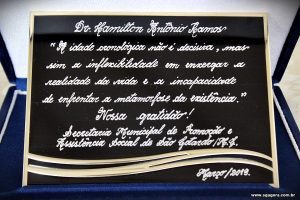 Dr. Hamilton Antônio Ramos
"A idade cronológica não é decisiva, mas
sim a inflexibilidade em enxergar a
realidade da vida e a incapacidade
de enfrentar a metamorfose da existência."
Nossa gratidão!
Secretaria Municipal de Promoção e
Assistência Social de São Gotardo/M.G.
Março/2013.